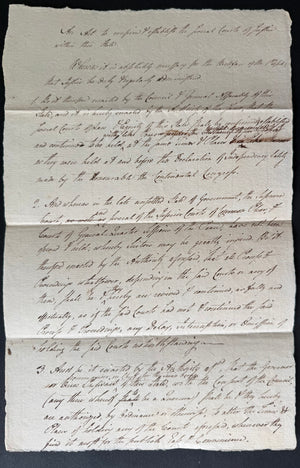 An Act to confirm & establish the several Courts of Justice
within this State
Whereas it is absolutely necessary for the Welfare of the State,
that Justice be duly & regularly Administered
1. Be it therefore enacted by the Council & General Assembly of this
State, and it is hereby enacted by the Authority of the same, that the
several Courts of Law & Equity of this State shall be
and continued to be held, at the same times & Places
as they were held at and before the Declaration of Independency lately
made by the Honourable the Continental Congress.
2. And whereas in the late unsettled State of Government, the Supreme
Court, as well as several of the Inferior Courts of Common Pleas, &
Courts of General Quarter Sessions of the Peace, have not been
opened & held, whereby Suitors may be greatly injured, Be it
therefore enacted by the Authority aforesaid, that all Process &
Proceedings whatsoever depending in the said Courts or any of
them, shall be & hereby are revived & continued, as fully and
effectually, as if the said Courts had met & continued the said
Process & Proceedings, any Delay, Intermission, or Omission of
holding the said Courts notwithstanding.
3 And be it enacted by the Authority afd. that the Governor
or Vice President of this State, with the Consent of the Council
(any three whereof shall be a Quorum) shall be & they hereby
are authorized by Ordinance or otherwise, to alter the Times &
Places of holding any of the Courts aforesaid, whensoever they
find it most for the publick Good & Convenience.